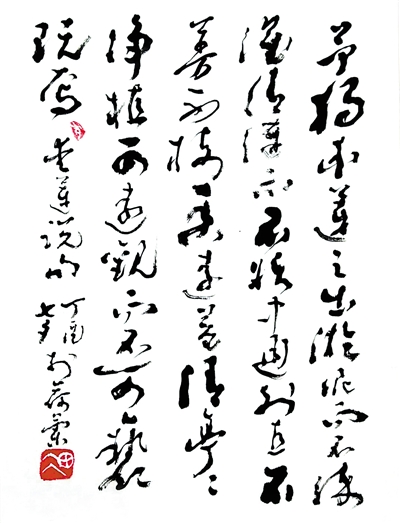 予獨愛蓮之出淤泥而不染
濯清漣而不妖中通外直不
蔓不枝香遠益清亭〻
淨植可遠觀而不可褻
玩焉
愛蓮說句
丁酉
七夕